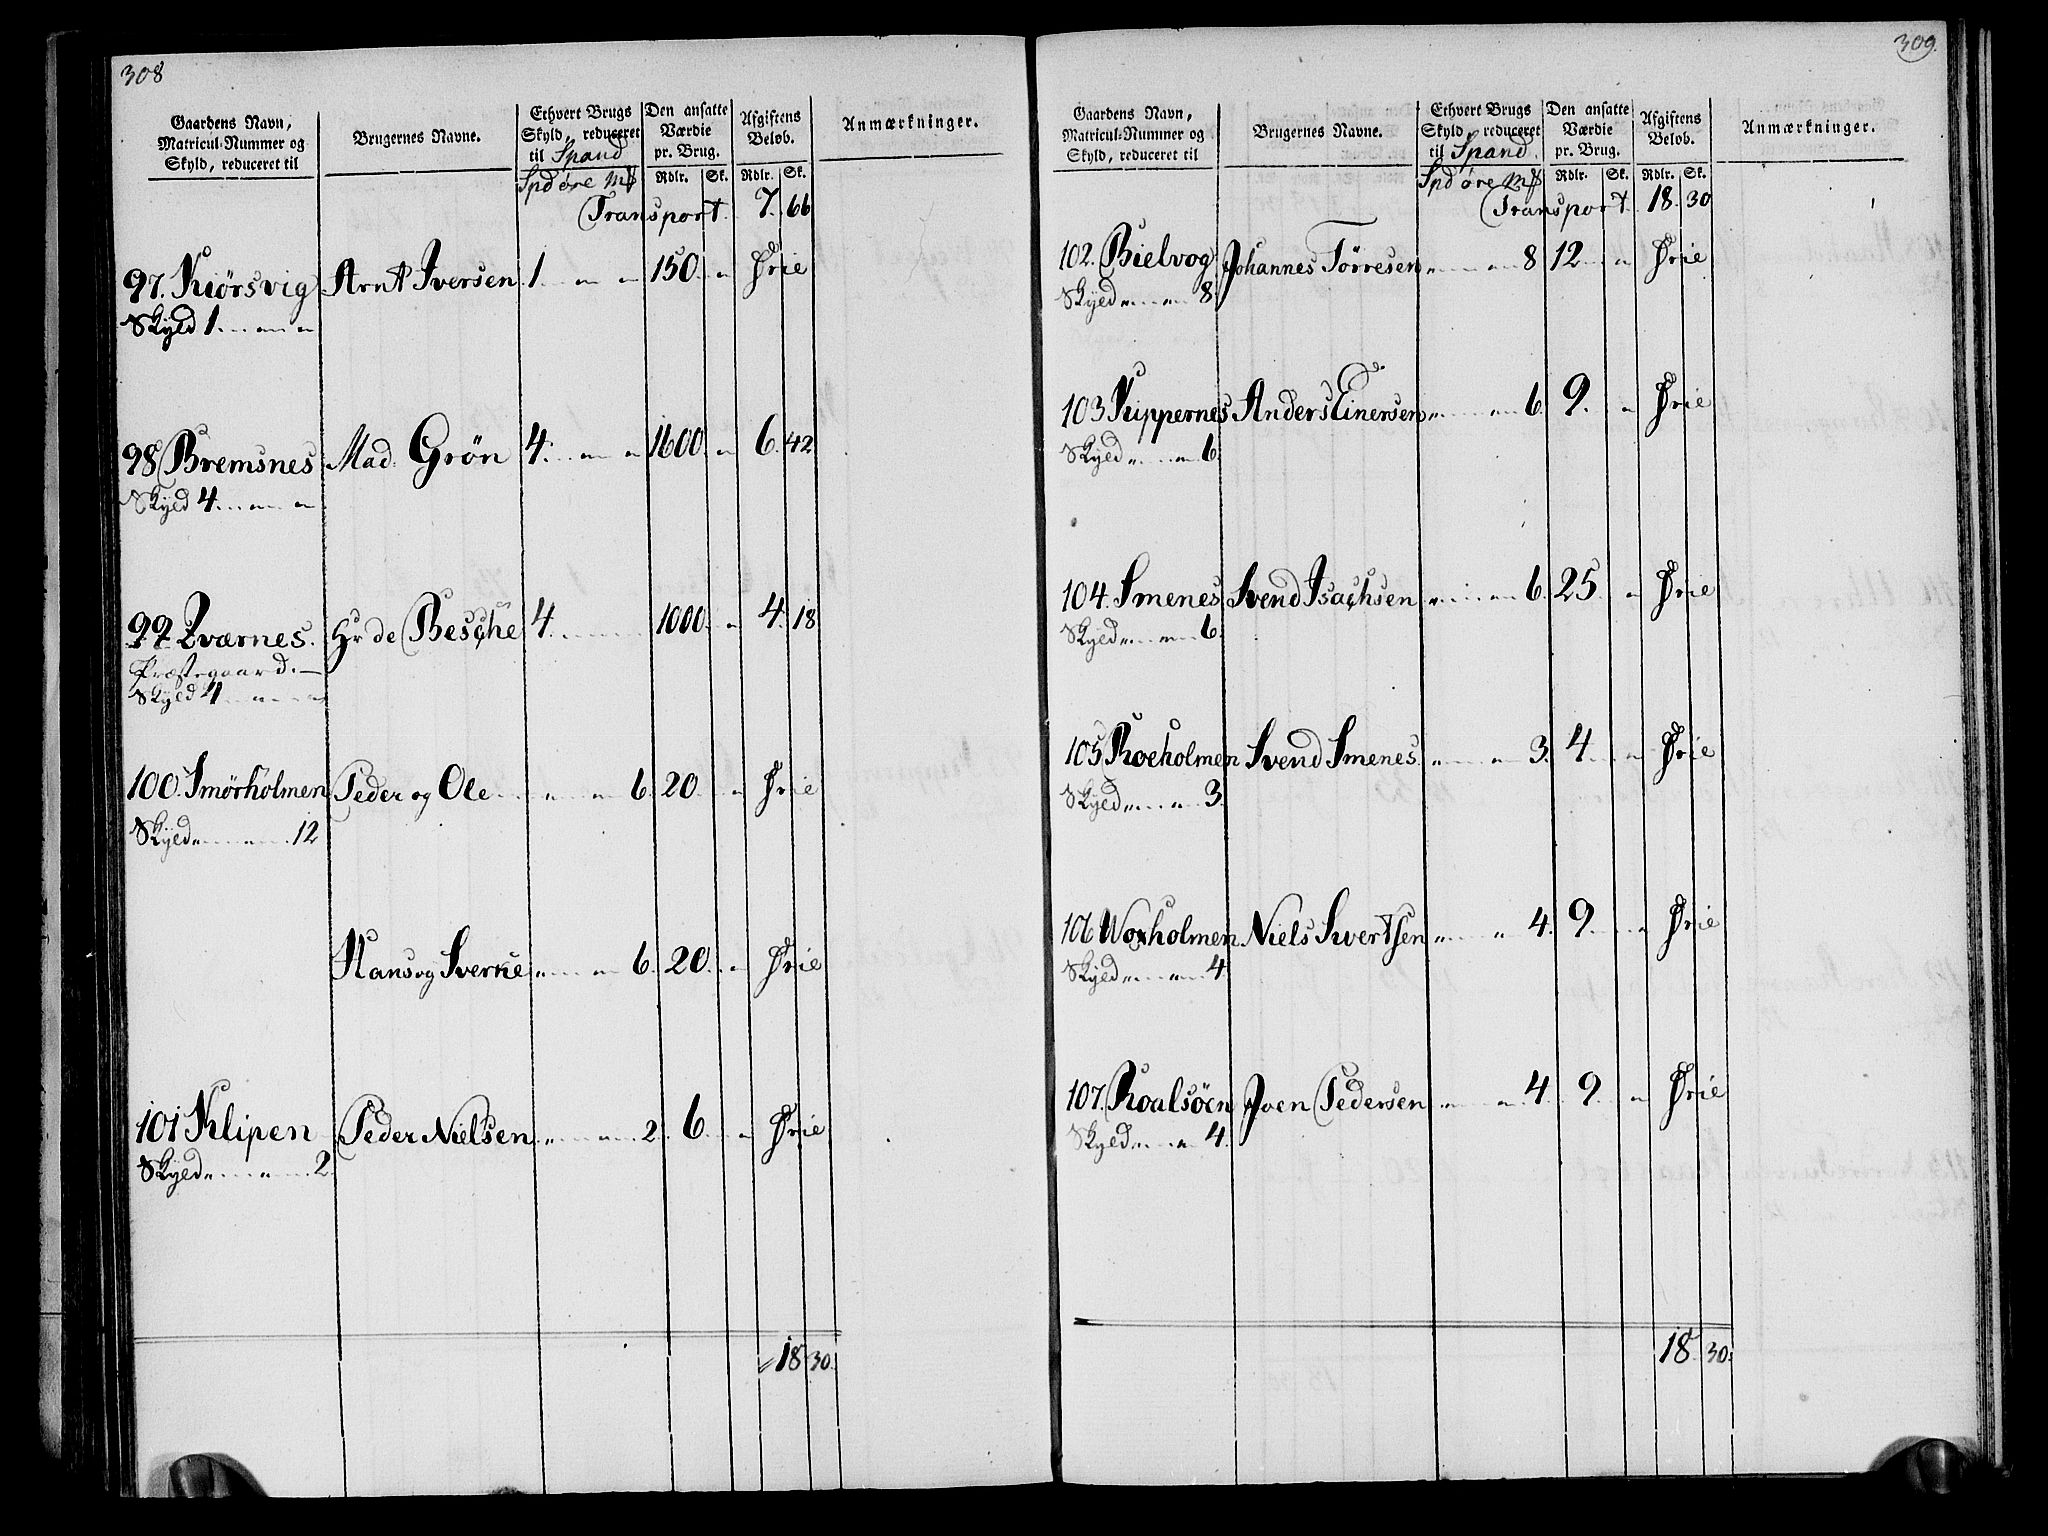 308
Gaardens Navn, Matricul-Nummer og Skyld, reduceret til
Brugernes Navne.
Ethvert Brugs Skyld, reduceret til Spand
Den ansatte Værdie pr. Brug.
Afgiftens Beløb.
Anmærkninger.
Spd øre Mk Rdlr. Sk. Rdlr. Sk.
Transport. 7. 66
97. Kiørsvig Arnt Iversen 1 " " 150 " Frie
Skyld 1 " "
98 Bremsnes Mad. Grön 4 " " 1600 " 6. 42
Skyld 4 " "
99 Qværnes. Hr de Besche 4 1000 " 4. 18
Præstegaard.
Skyld 4 " "
100. Smörholmen Peder og Ole " " 6. 20 " Frie
Skyld " " 12
Hans og Sverke " " 6. 20 " Frie
101 Klipen Peder Nielsen " " 2. 6 " Frie
Skyld " " 2.
18 30.
309.
Gaardens Navn, Matricul-Nummer og Skyld, reduceret til
Brugernes Navne.
Ethvert Brugs Skyld, reduceret til Spand.
Den ansatte Værdie pr. Brug.
Afgiftens Beløb.
Anmærkninger.
Spd øre Mk Rdlr. Sk. Rdlr. Sk.
Transport. 18. 30
102. Bielvog Johannes Törresen " " 8 12 " Frie
Skyld " " 8.
103 Kippernes Anders Einersen " " 6. 9. " Frie
Skyld " " 6.
104. Smenes Svend Isachsen " " 6. 25 " Frie
Skyld " " 6.
105 Roeholmen Svend Smenes. " " 3. 4 " Frie
Skyld " " 3.
106 Woxholmen Niels Sivertsen " " 4. 9 " Frie
Skyld " " 4.
107. Roalsöen Iven Pedersen " " 4. 9 " Frie
Skyld " " 4.
18. 30.